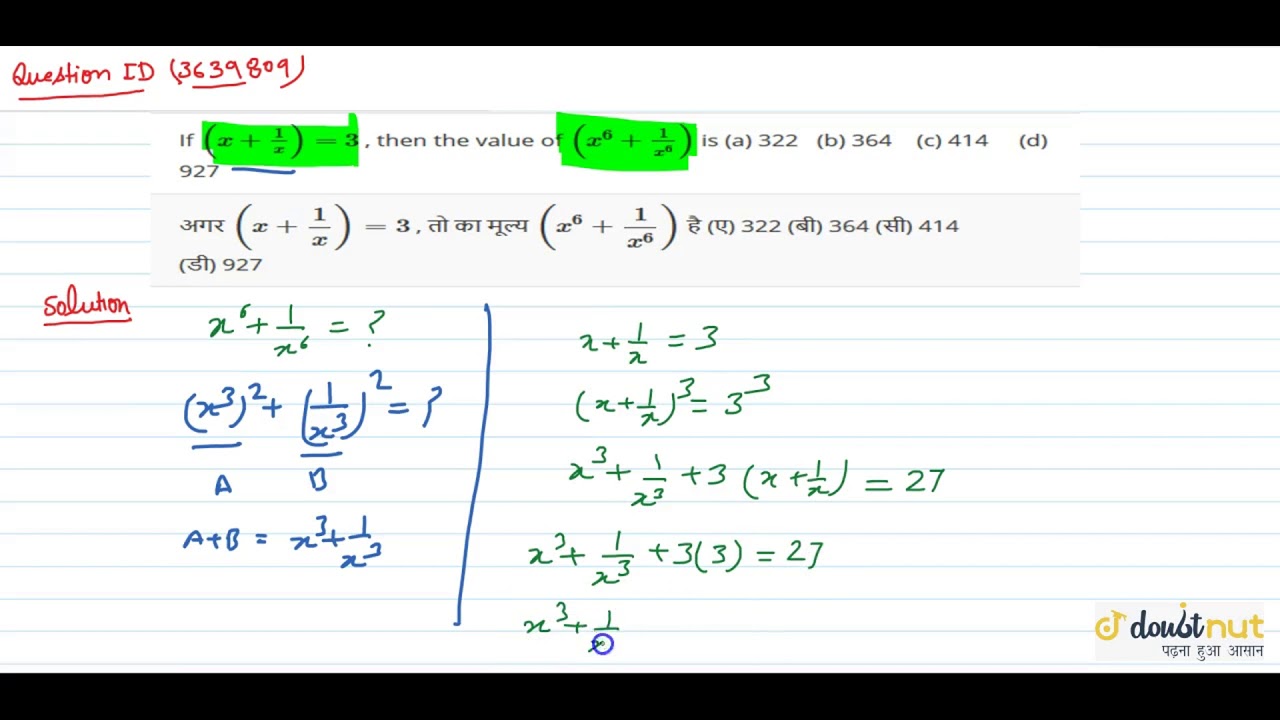 Question ID (3639809)
If (x + 1/x) = 3 , then the value of (x⁶ + 1/x⁶) is (a) 322 (b) 364 (c) 414 (d)
927
अगर (x + 1/x) = 3 , तो का मूल्य (x⁶ + 1/x⁶) है (ए) 322 (बी) 364 (सी) 414
(डी) 927
Solution
x⁶ + 1/x⁶ = ?
(x³)² + (1/x³)² = ?
A B
A+B = x³ + 1/x³
x + 1/x = 3
(x + 1/x)³ = 3³
x³ + 1/x³ + 3 (x + 1/x) = 27
x³ + 1/x³ + 3(3) = 27
x³ + 1/x
doubtnut
पढ़ना हुआ आसान